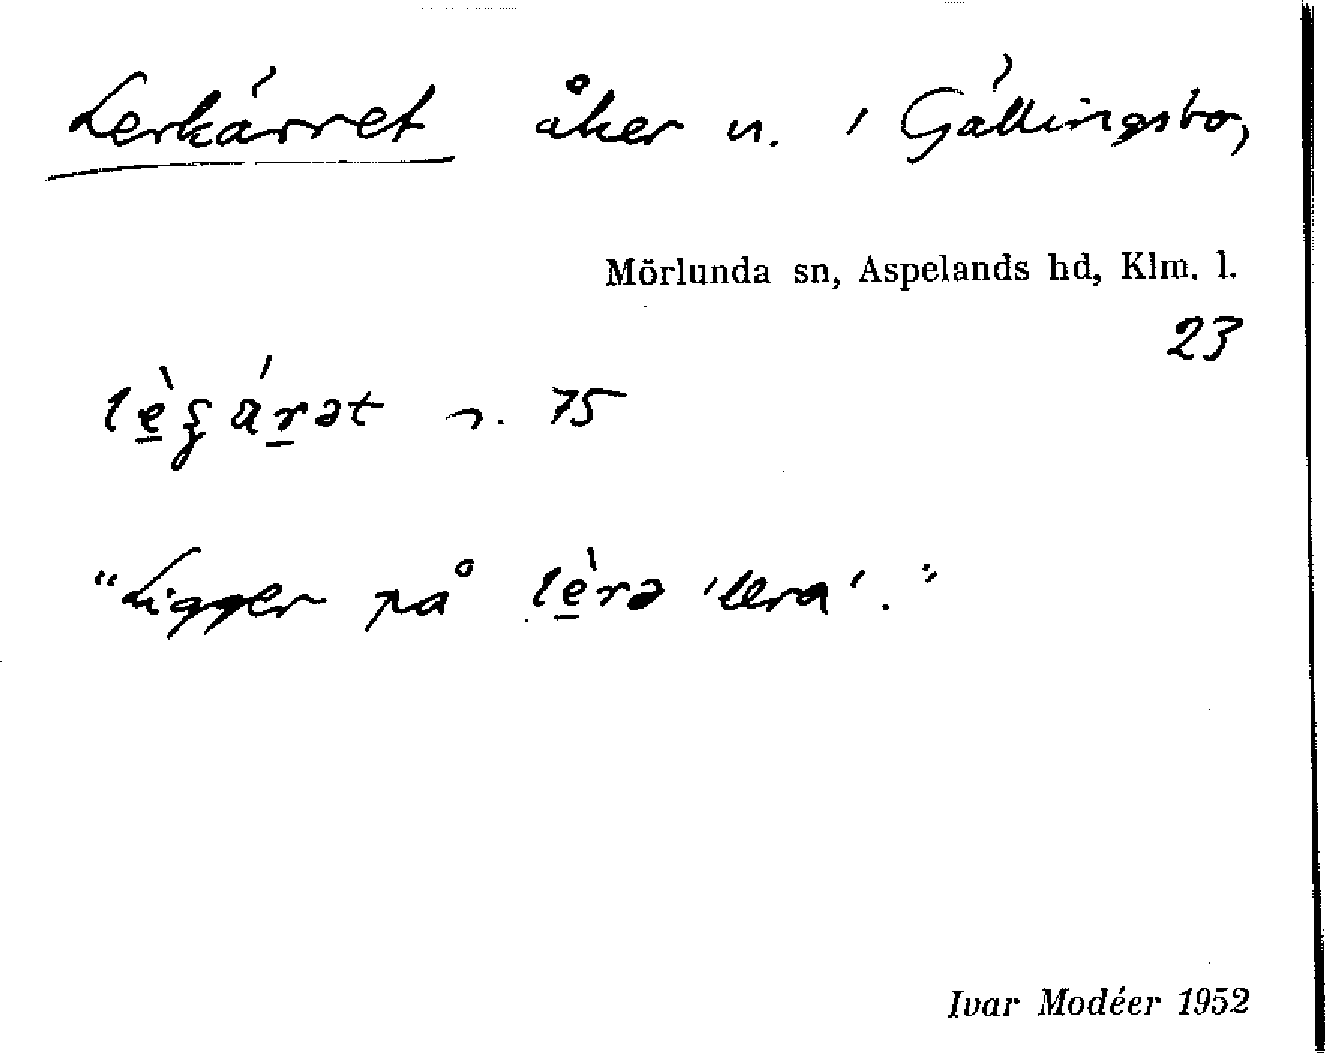 Lerkärret åker n. i Gällingsbo,
Mörlunda sn, Aspelands hd, Klm. l.
23
n. 75
"Ligger på lè̱rə 'lera'."
Ivar Modéer 1952